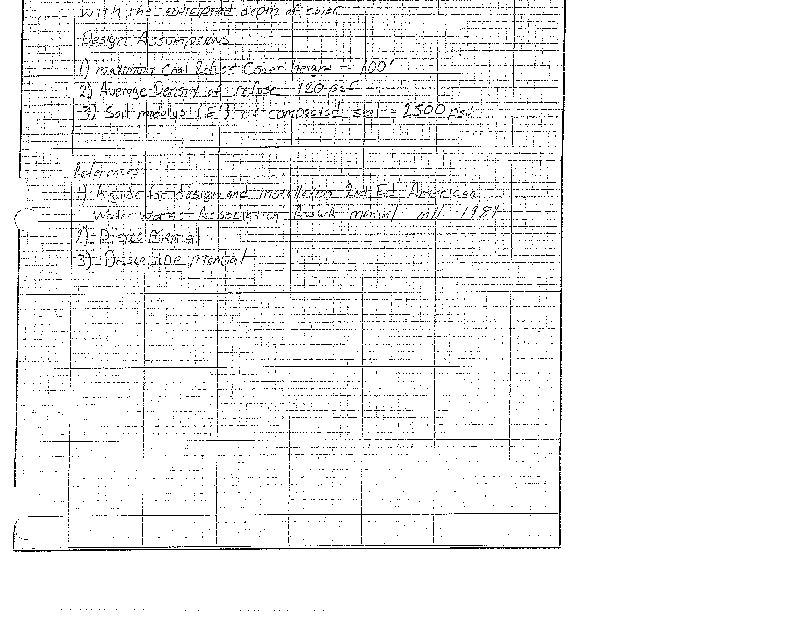 with the anticipated depth of cover
Design Assumptions
1) maximum Coal Refuse Cover height = 100'
2) Average Density of refuse 120 pcf
3) Soil modulus (E') of compacted soil = 2500 psi
References
1) A guide for design and installation 2nd Ed American
Water Works Association manual M11 1984
2)
3) manual